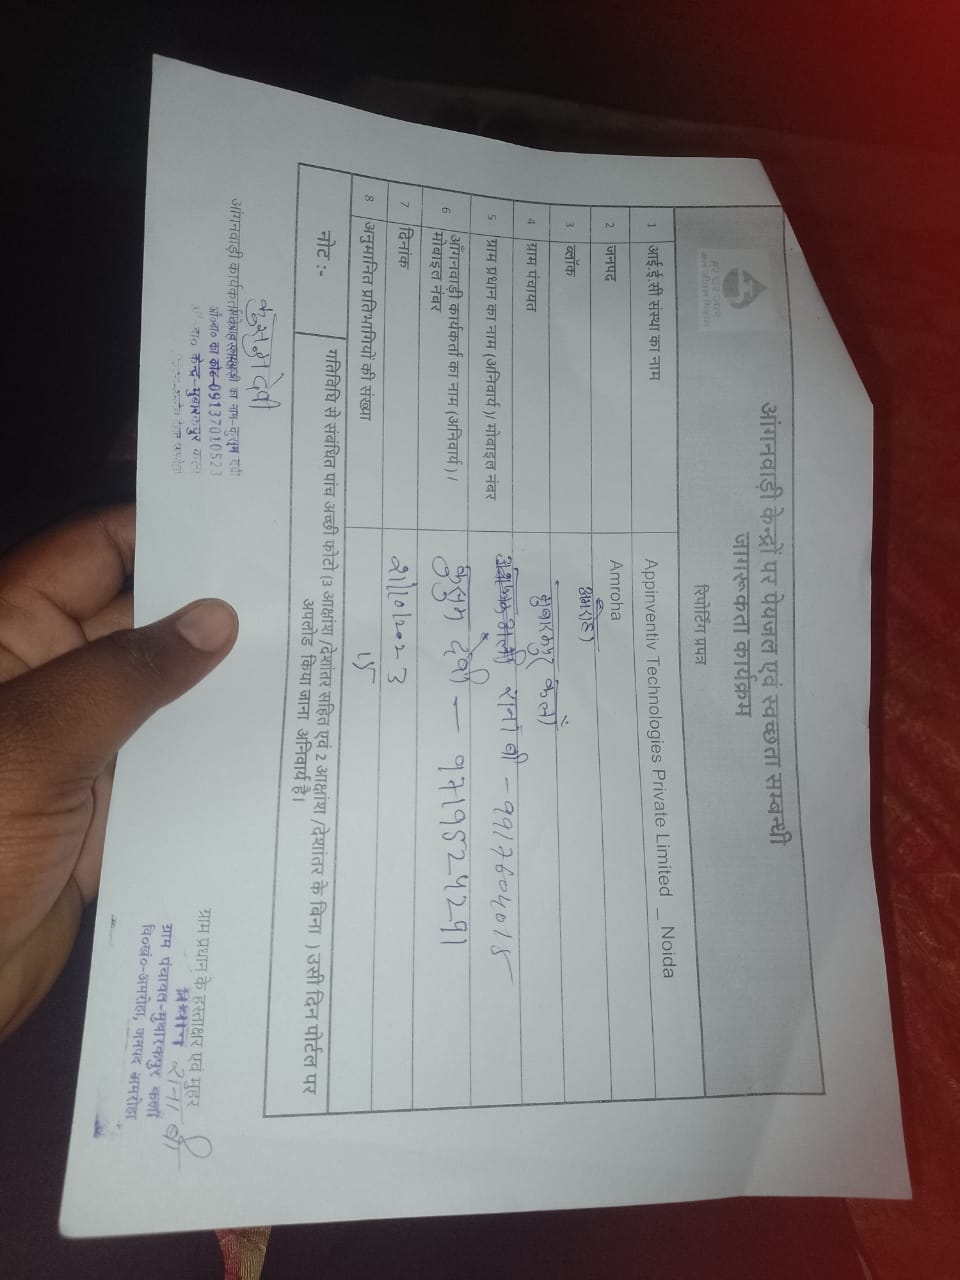 आंगनवाड़ी केन्द्रों पर पेयजल एवं स्वच्छता सम्बन्धी
जागरूकता कार्यक्रम
रिपोर्टिंग प्रपत्र
1 आई.ई.सी संस्था का नाम Appinventiv Technologies Private Limited _ Noida
2 जनपद Amroha
3 ब्लॉक अमरोहा
4 ग्राम पंचायत मुबारकपुर कलां
5 ग्राम प्रधान का नाम (अनिवार्य)/ मोबाइल नंबर बी - 9917604015
6 आँगनवाड़ी कार्यकर्ता का नाम (अनिवार्य) / मोबाइल नंबर कुसुम देवी — 9719524291
7 दिनांक 21/01/2023
8 अनुमानित प्रतिभागियों की संख्या 15
नोट :- गतिविधि से संबंधित पांच अच्छी फोटो (3 आक्षांश / देशांतर सहित एवं 2 आक्षांश /देशांतर के बिना ) उसी दिन पोर्टल पर
अपलोड किया जाना अनिवार्य है।
देवी
आंगनवाड़ी का नाम-कुसुम देवी
का कोड-09137010523
केन्द्र-मुबारकपुर कलां
ग्राम प्रधान के हस्ताक्षर एवं मुहर
ग्राम पंचायत-मुबारकपुर कलां
वि०खं०-अमरोहा, जनपद अमरोहा